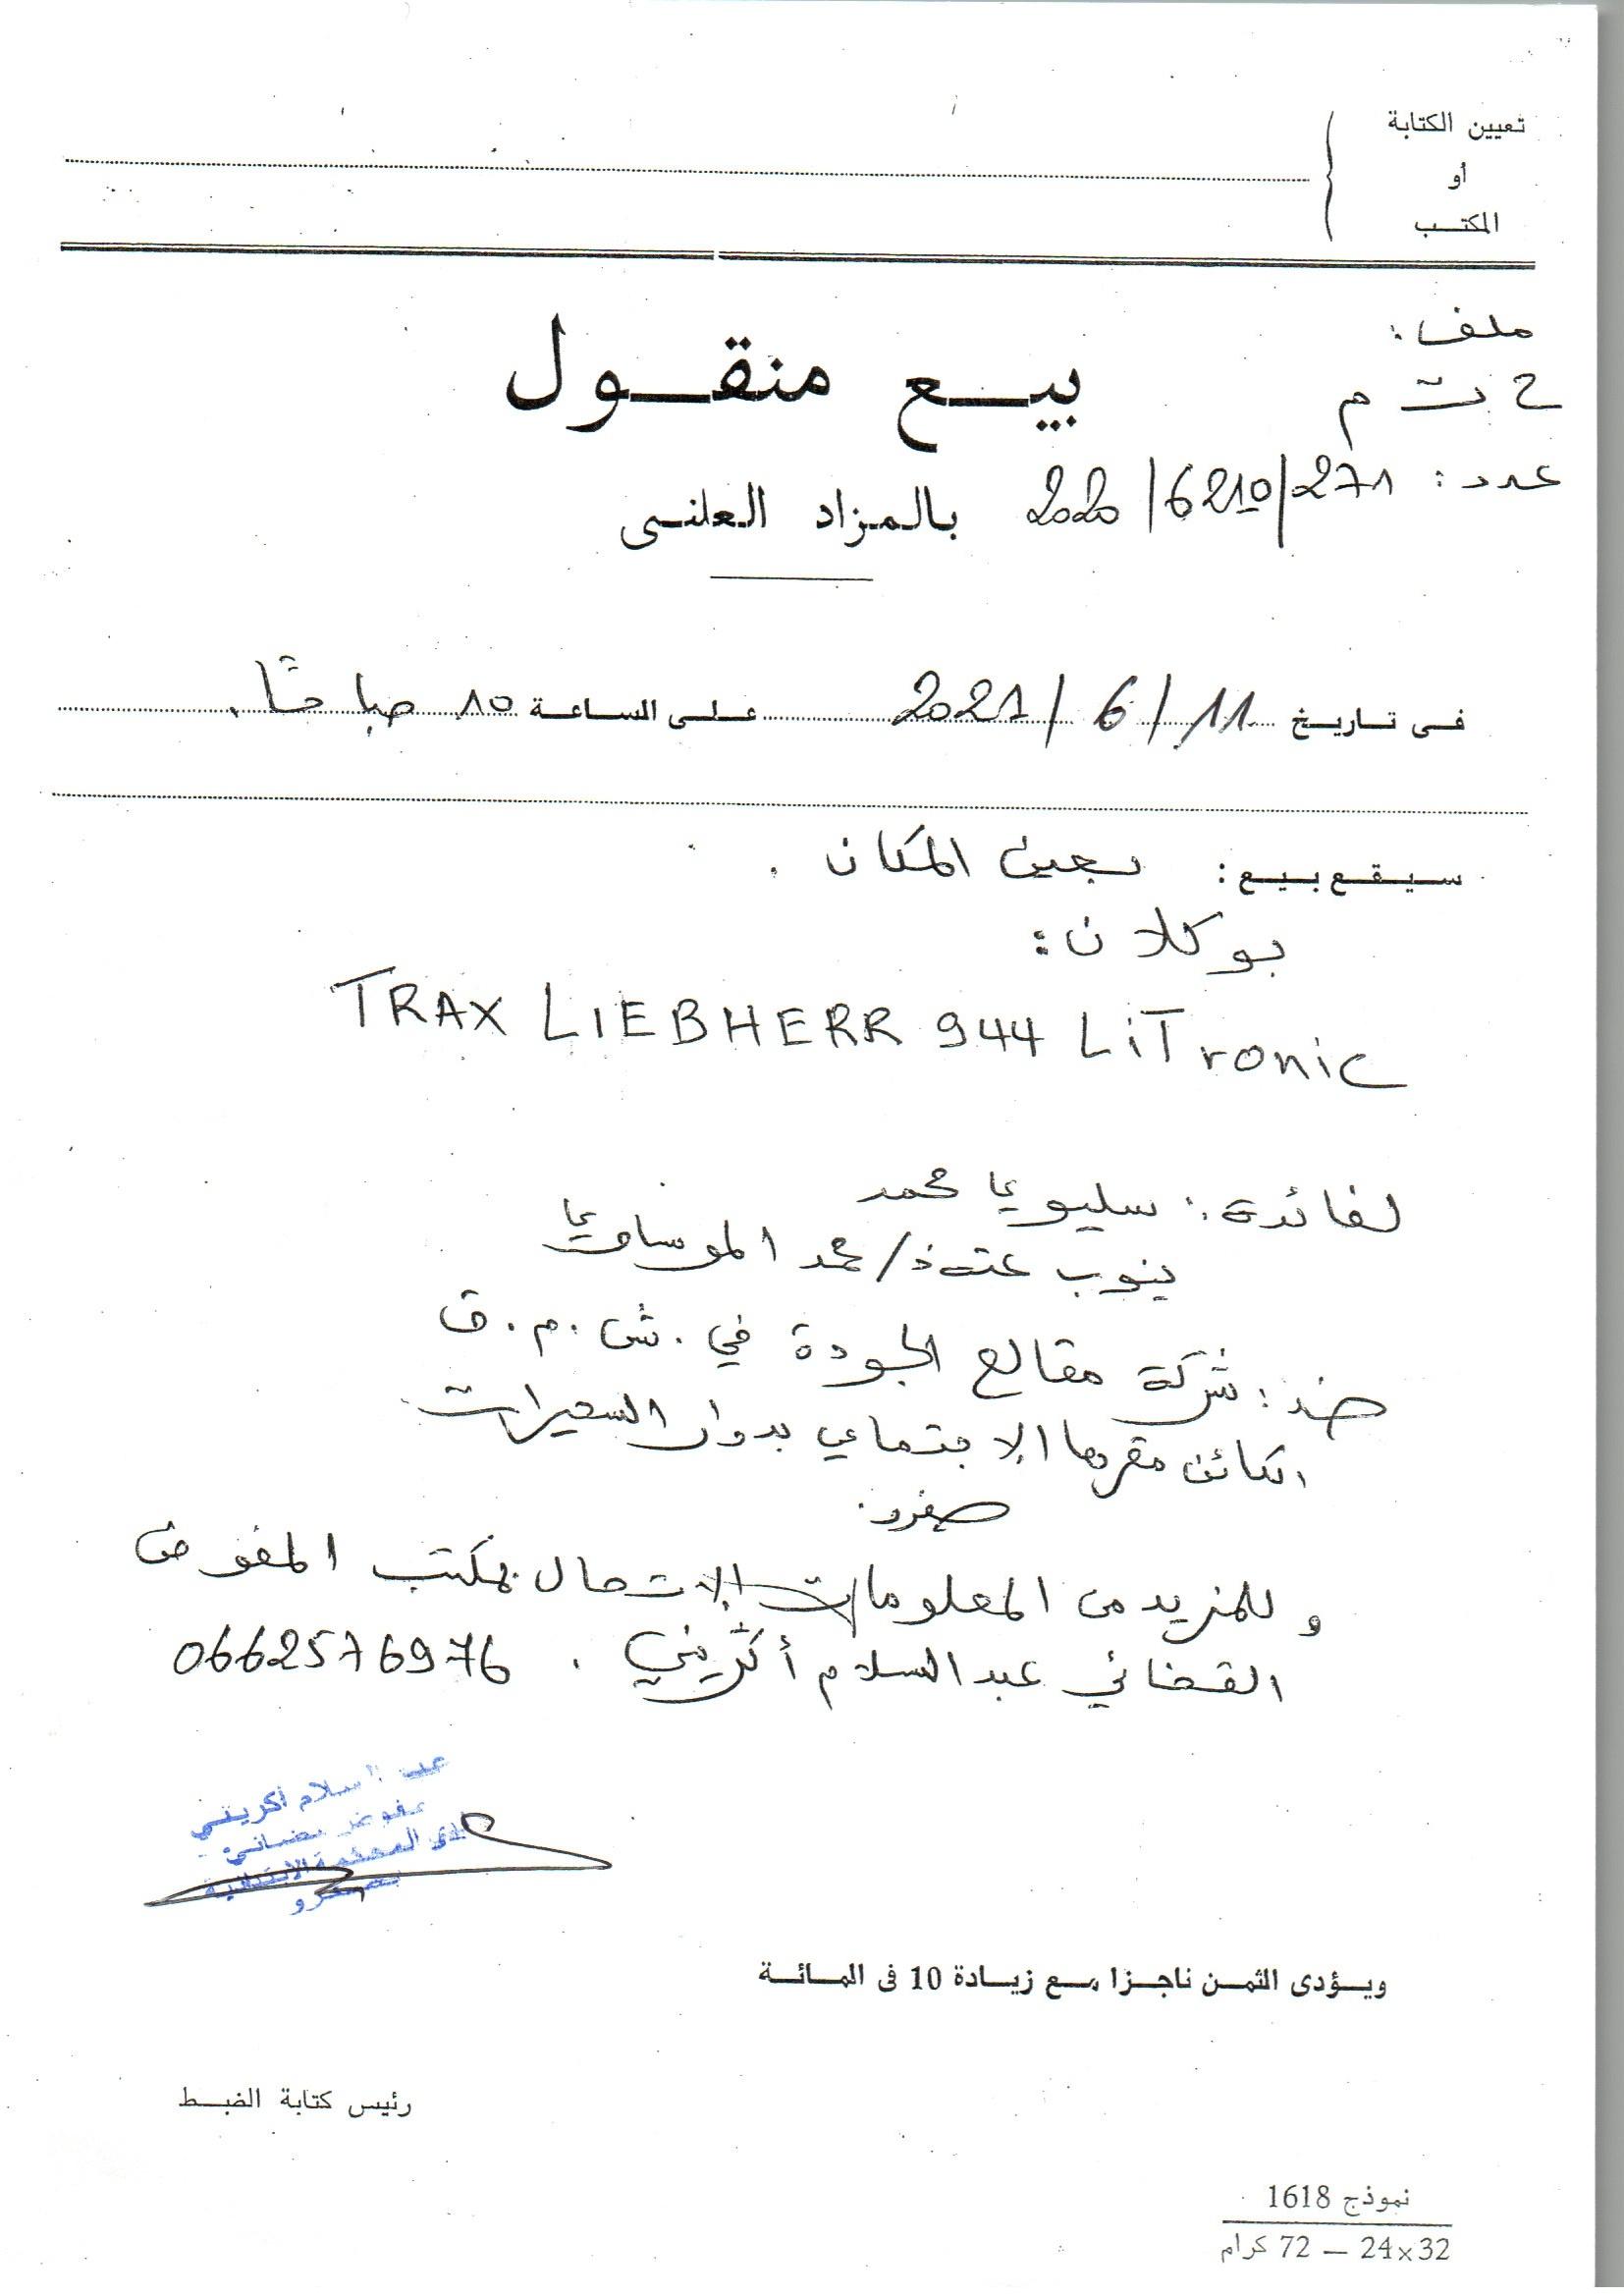 تعيين الكتابة
أو
المكتب
ملف:
ح ت م
بيع منقول
عدد: 271/6210/2020
بالمزاد العلنى
فى تاريخ 11/6/2021 على الساعة 10 صباحًا.
سيقع بيع: بعين المكان.
بوكلان:
TRAX LIEBHERR 944 LiTronic
لفائدة: سليوي محمد
ينوب عنه ذ/محمد الموساوي
ضد: شركة مقالع الجودة في.ش.م.ق
الكائن مقرها الإجتماعي بدوار السعيرات
صفرو.
وللمزيد من المعلومات الإتصال بمكتب المفوض
القضائي عبد السلام أكريني. 0662576976
عبد السلام أكريني
مفوض قضائي
لدى المحكمة الابتدائية
بصفرو
ويؤدى الثمن ناجزا مع زيادة 10 فى المائة
رئيس كتابة الضبط
نموذج 1618
24×32 — 72 كرام